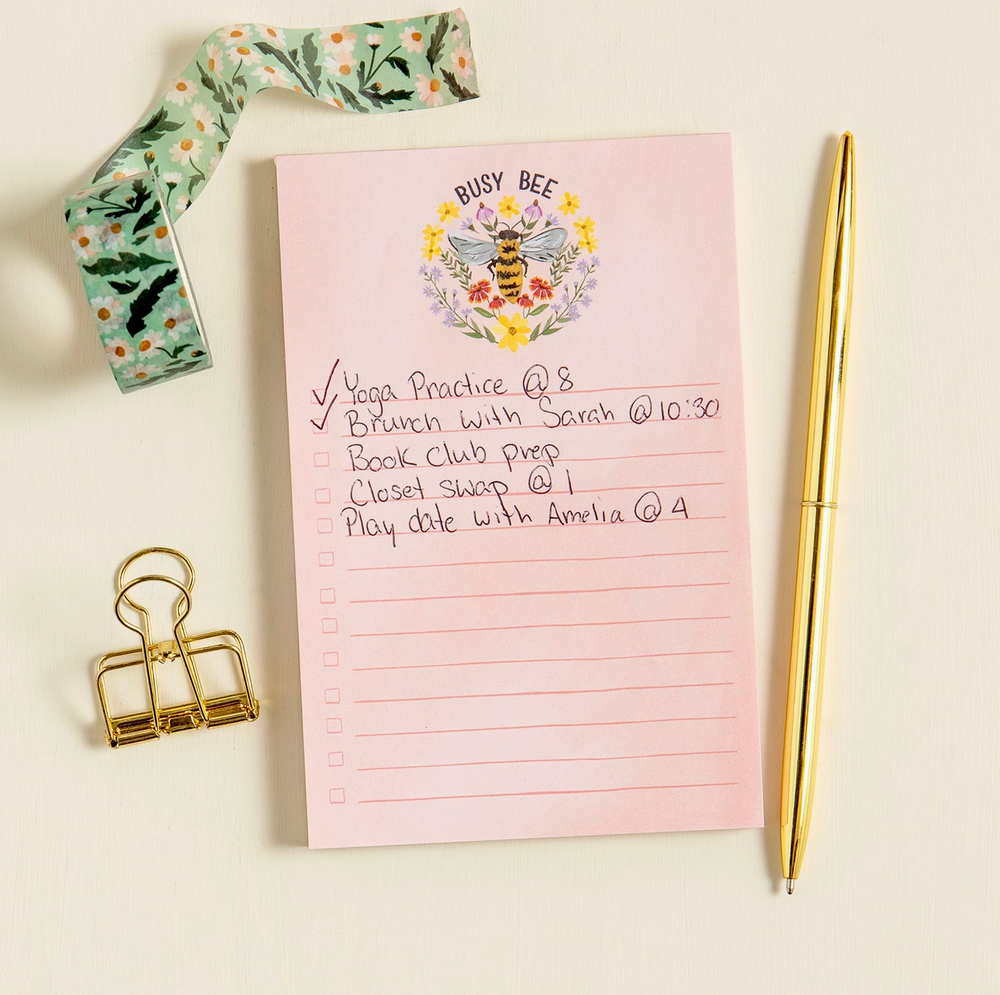 BUSY BEE
Yoga Practice @ 8
Brunch with Sarah @ 10:30
Book club prep
Closet swap @ 1
Play date with Amelia @ 4